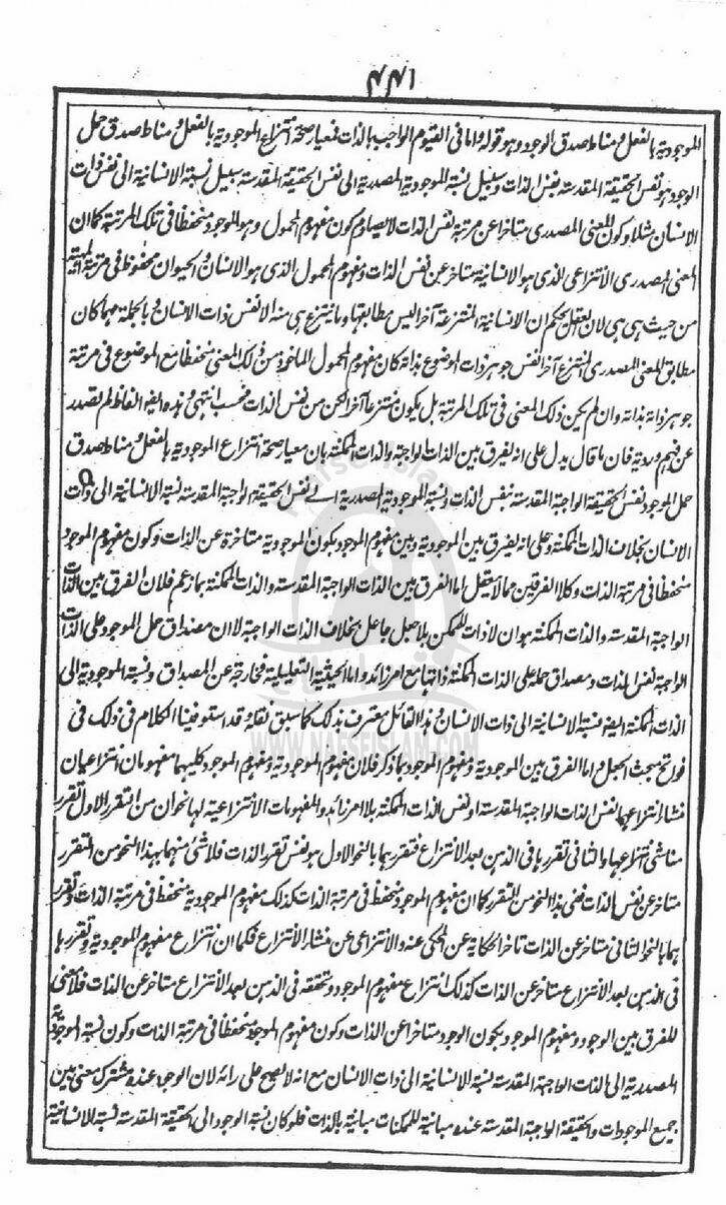 ٤٤١
الموجودية بالفعل و مناط صدق الوجود و هو قوله و اما فی القیوم الواجب بالذات فمعیار صحة انتزاع الموجودية بالفعل و مناط صدق حمل
الوجود هو نفس الحقيقة المقدسة بنفس الذات و سبيل نسبة الموجودية المصدرية الى نفس الحقيقة المقدسة سبيل نسبة الانسانية الى نفس ذات
الانسان مثلا و كون المعنى المصدرى متاخرا عن مرتبة نفس الذات لا يصادم كون مفهوم المحمول و هو الموجود منحفظا فى تلك المرتبة كما ان
المعنى المصدرى الانتزاعى الذى هو الانسانية متاخر عن نفس الذات و مفهوم المحمول الذى هو الانسان و الحيوان محفوظ فى مرتبة
من حيث هى هى لان العقل يحكم ان الانسانية المنتزعة آخرا ليس مطابقها و ما ينتزع هى منه الا نفس ذات الانسان و بالجملة مهما كان
مطابق المعنى المصدرى المنتزع آخرا نفس جوهر ذات الموضوع بذاته كان مفهوم المحمول الماخوذ من ذلك المعنى منحفظا مع الموضوع فى مرتبة
جوهر ذاته بذاته و ان لم يكن ذلك المعنى فى تلك المرتبة بل يكون منتزعا آخرا لكن من نفس الذات فحسب انتهى و هذه ايضا الفاظ لم تصدر
عن فهم و روية فان ما قال يدل على انه يفرق بين الذات الواجبة و الذات الممكنة بان معيار صحة انتزاع الموجودية بالفعل و مناط صدق
حمل الموجود نفس الحقيقة الواجبة المقدسة بنفس الذات و نسبة الموجودية المصدرية الى نفس الحقيقة الواجبة المقدسة نسبة الانسانية الى ذات
الانسان بخلاف الذات الممكنة و على انه يفرق بين الموجودية و بين مفهوم الموجود بكون الموجودية متاخرة عن الذات و كون مفهوم الموجود
منحفظا فى مرتبة الذات و كلا الفرقين مما لا يعقل اما الفرق بين الذات الواجبة المقدسة و الذات الممكنة بما زعم فلان الفرق بين الذات
الواجبة المقدسة و الذات الممكنة هو ان لا ذات للممكن بلا جعل جاعل بخلاف الذات الواجبة لا ان مصداق حمل الموجود على الذات
الواجبة نفس الذات و مصداق حمله على الذات الممكنة ذاتها مع امر زائد و اما الحيثية التعليلية فخارجة عن المصداق و نسبة الموجودية الى
الذات الممكنة ايضا نسبة الانسانية الى ذات الانسان و هذا القائل معترف بذلك كما سبق نقله و قد استوفينا الكلام فى ذلك فى
فواتح مبحث الجعل و اما الفرق بين الموجودية و مفهوم الموجود بما ذكر فلان مفهوم الموجودية و مفهوم الموجود كليهما مفهومان انتزاعيان
منشا انتزاعهما نفس الذات الواجبة المقدسة او نفس الذات الممكنة بلا امر زائد و المفهومات الانتزاعية لها نحوان من التقرر الاول تقرر
مناشى انتزاعها و الثانى تقررها فى الذهن بعد الانتزاع فتقررهما بالنحو الاول هو نفس تقرر الذات فلا شى منهما بهذا النحو من التقرر
متاخر عن نفس الذات ففى هذا النحو من التقرر كما ان مفهوم الموجود منحفظ فى مرتبة الذات كذلك مفهوم الموجودية منحفظ فى مرتبة الذات و تقرر
هما بالنحو الثانى متاخر عن الذات تاخر الحكاية عن المحكى عنه و الانتزاعى عن منشا الانتزاع فكما ان انتزاع مفهوم الموجودية و تقررها
فى الذهن بعد الانتزاع متاخر عن الذات كذلك انتزاع مفهوم الموجود و تحققه فى الذهن بعد الانتزاع متاخر عن الذات فلا معنى
للفرق بين الوجود و مفهوم الموجود بكون الوجود متاخرا عن الذات و كون مفهوم الموجود منحفظا فى مرتبة الذات و كون نسبة الموجودية
المصدرية الى الذات الواجبة المقدسة نسبة الانسانية الى ذات الانسان مع انه لا يصح على رائه لان الوجود عنده مشترك معنى بين
جميع الموجودات و الحقيقة الواجبة المقدسة عنده مباينة للممكنات مباينة بالذات فلو كان نسبة الوجود الى الحقيقة المقدسة نسبة الانسانية
WWW.NAFSEISLAM.COM